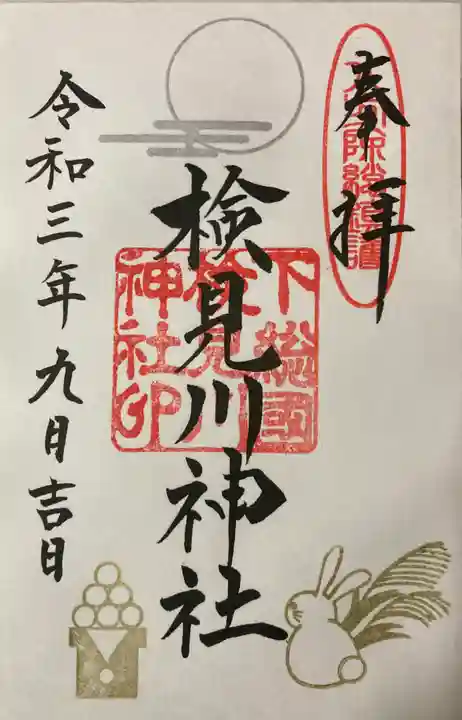 奉拝
検見川神社
下総國
検見川
神社印
令和三年九月吉日